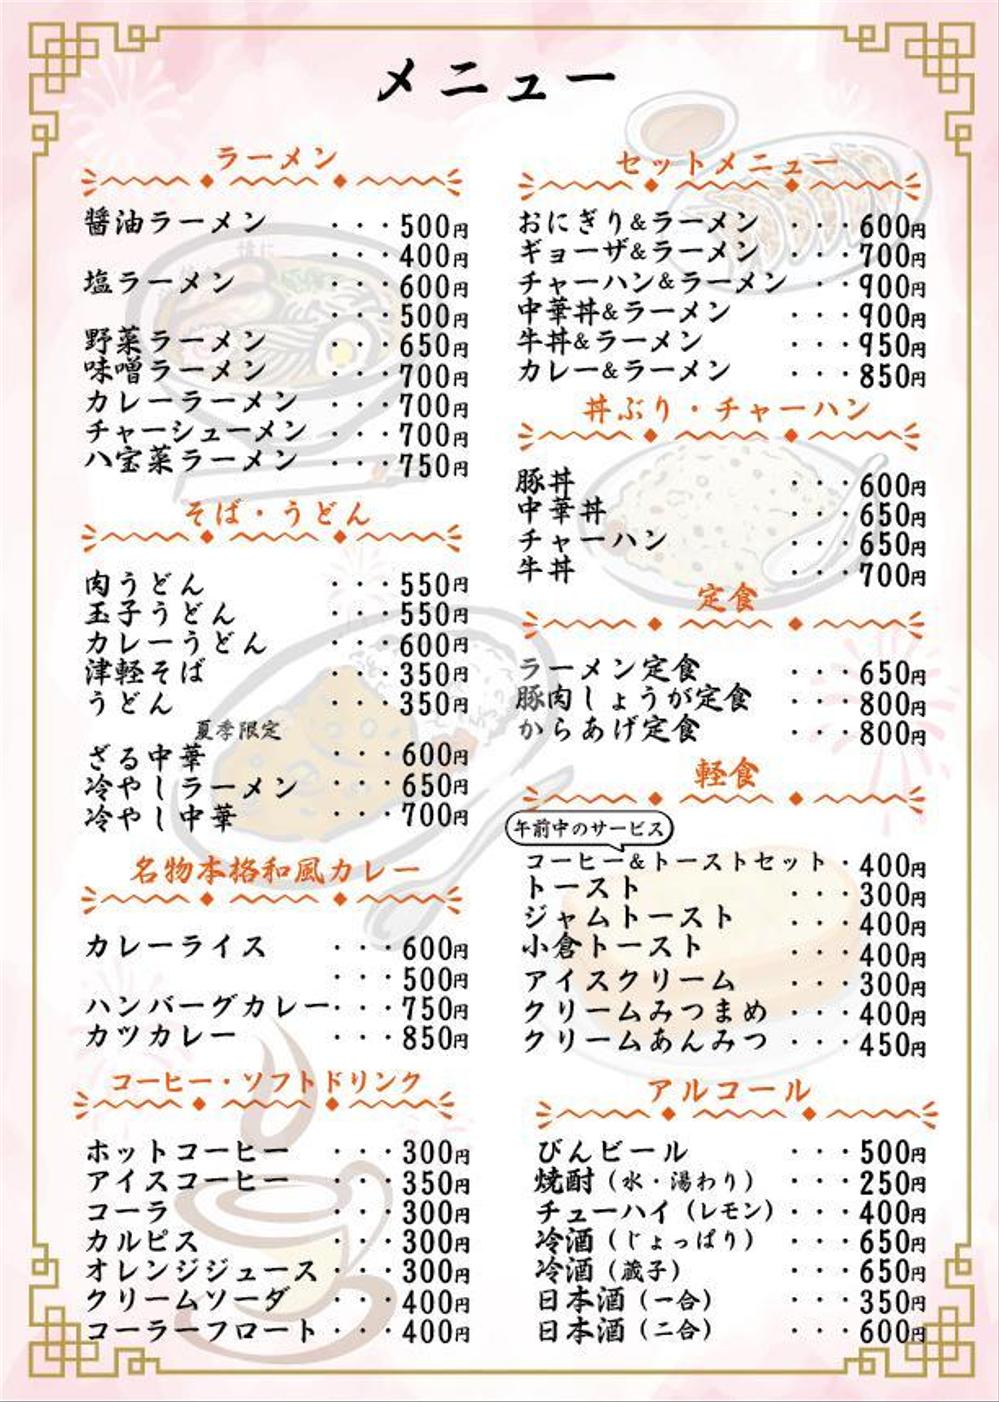 メニュー
ラーメン
醤油ラーメン ・・・500円
・・・400円
塩ラーメン ・・・600円
・・・500円
野菜ラーメン ・・・650円
味噌ラーメン ・・・700円
カレーラーメン ・・・700円
チャーシューメン ・・・700円
八宝菜ラーメン ・・・750円
そば・うどん
肉うどん ・・・550円
玉子うどん ・・・550円
カレーうどん ・・・600円
津軽そば ・・・350円
うどん ・・・350円
夏季限定
ざる中華 ・・・600円
冷やしラーメン ・・・650円
冷やし中華 ・・・700円
名物本格和風カレー
カレーライス ・・・600円
・・・500円
ハンバーグカレー・・・750円
カツカレー ・・・850円
コーヒー・ソフトドリンク
ホットコーヒー ・・・300円
アイスコーヒー ・・・350円
コーラ ・・・300円
カルピス ・・・300円
オレンジジュース・・・300円
クリームソーダ ・・・400円
コーラーフロート・・・400円
セットメニュー
おにぎり&ラーメン ・・・600円
ギョーザ&ラーメン ・・・700円
チャーハン&ラーメン ・・・900円
中華丼&ラーメン ・・・900円
牛丼&ラーメン ・・・950円
カレー&ラーメン ・・・850円
丼ぶり・チャーハン
豚丼 ・・・600円
中華丼 ・・・650円
チャーハン ・・・650円
牛丼 ・・・700円
定食
ラーメン定食 ・・・650円
豚肉しょうが定食 ・・・800円
からあげ定食 ・・・800円
軽食
午前中のサービス
コーヒー&トーストセット・400円
トースト ・・・300円
ジャムトースト ・・・400円
小倉トースト ・・・400円
アイスクリーム ・・・300円
クリームみつまめ ・・・400円
クリームあんみつ ・・・450円
アルコール
びんビール ・・・500円
焼酎（水・湯わり） ・・・250円
チューハイ（レモン）・・・400円
冷酒（じょっぱり） ・・・650円
冷酒（蔵子） ・・・650円
日本酒（一合） ・・・350円
日本酒（二合） ・・・600円